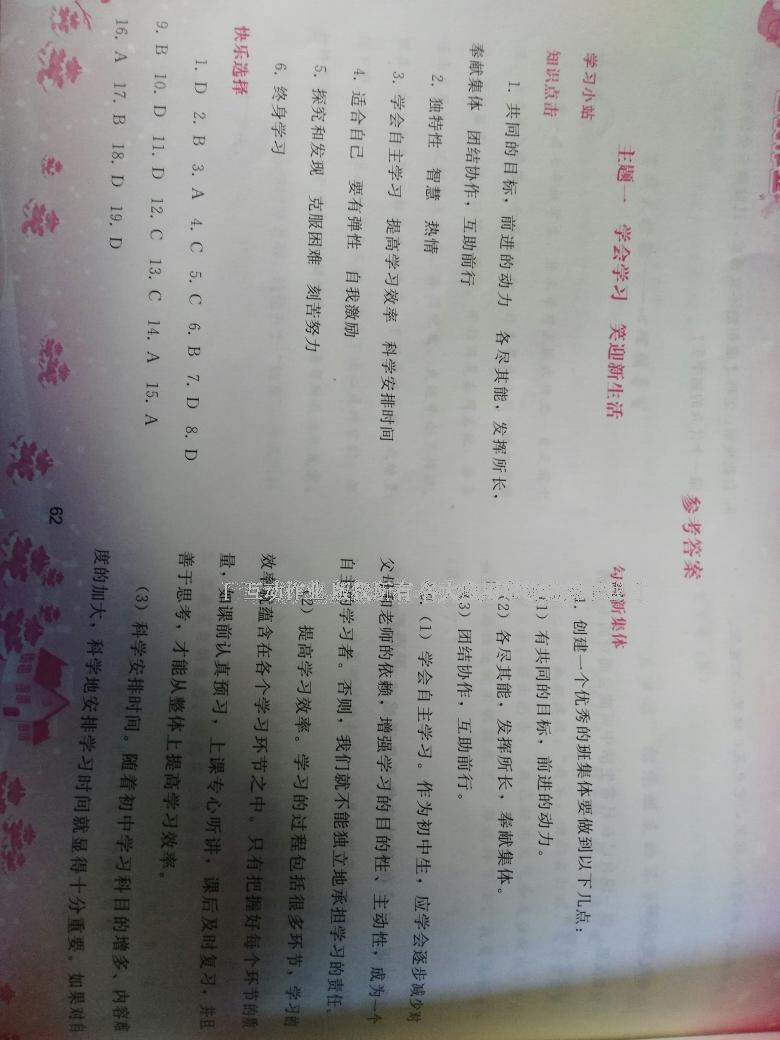 参考答案
主题一 学会学习 笑迎新生活
学习小站
知识点击
1. 共同的目标，前进的动力 各尽其能，发挥所长，
奉献集体 团结协作，互助前行
2. 独特性 智慧 热情
3. 学会自主学习 提高学习效率 科学安排时间
4. 适合自己 要有弹性 自我激励
5. 探究和发现 克服困难 刻苦努力
6. 终身学习
快乐选择
1. D 2. B 3. A 4. C 5. C 6. B 7. D 8. D
9. B 10. D 11. D 12. C 13. C 14. A 15. A
16. A 17. B 18. D 19. D
新集体
1. 创建一个优秀的班集体要做到以下几点：
(1) 有共同的目标，前进的动力。
(2) 各尽其能，发挥所长，奉献集体。
(3) 团结协作，互助前行。
(1) 学会自主学习。作为初中生，应学会逐步减少对
父母和老师的依赖，增强学习的目的性、主动性，成为一个
自主的学习者。否则，我们就不能独立地承担学习的责任。
(2) 提高学习效率。学习的过程包括很多环节，学习的
效率蕴含在各个学习环节之中。只有把握好每个环节的质
量，如课前认真预习，上课专心听讲，课后及时复习，并且
善于思考，才能从整体上提高学习效率。
(3) 科学安排时间。随着初中学习科目的增多、内容难
度的加大，科学地安排学习时间就显得十分重要。如果对自
62